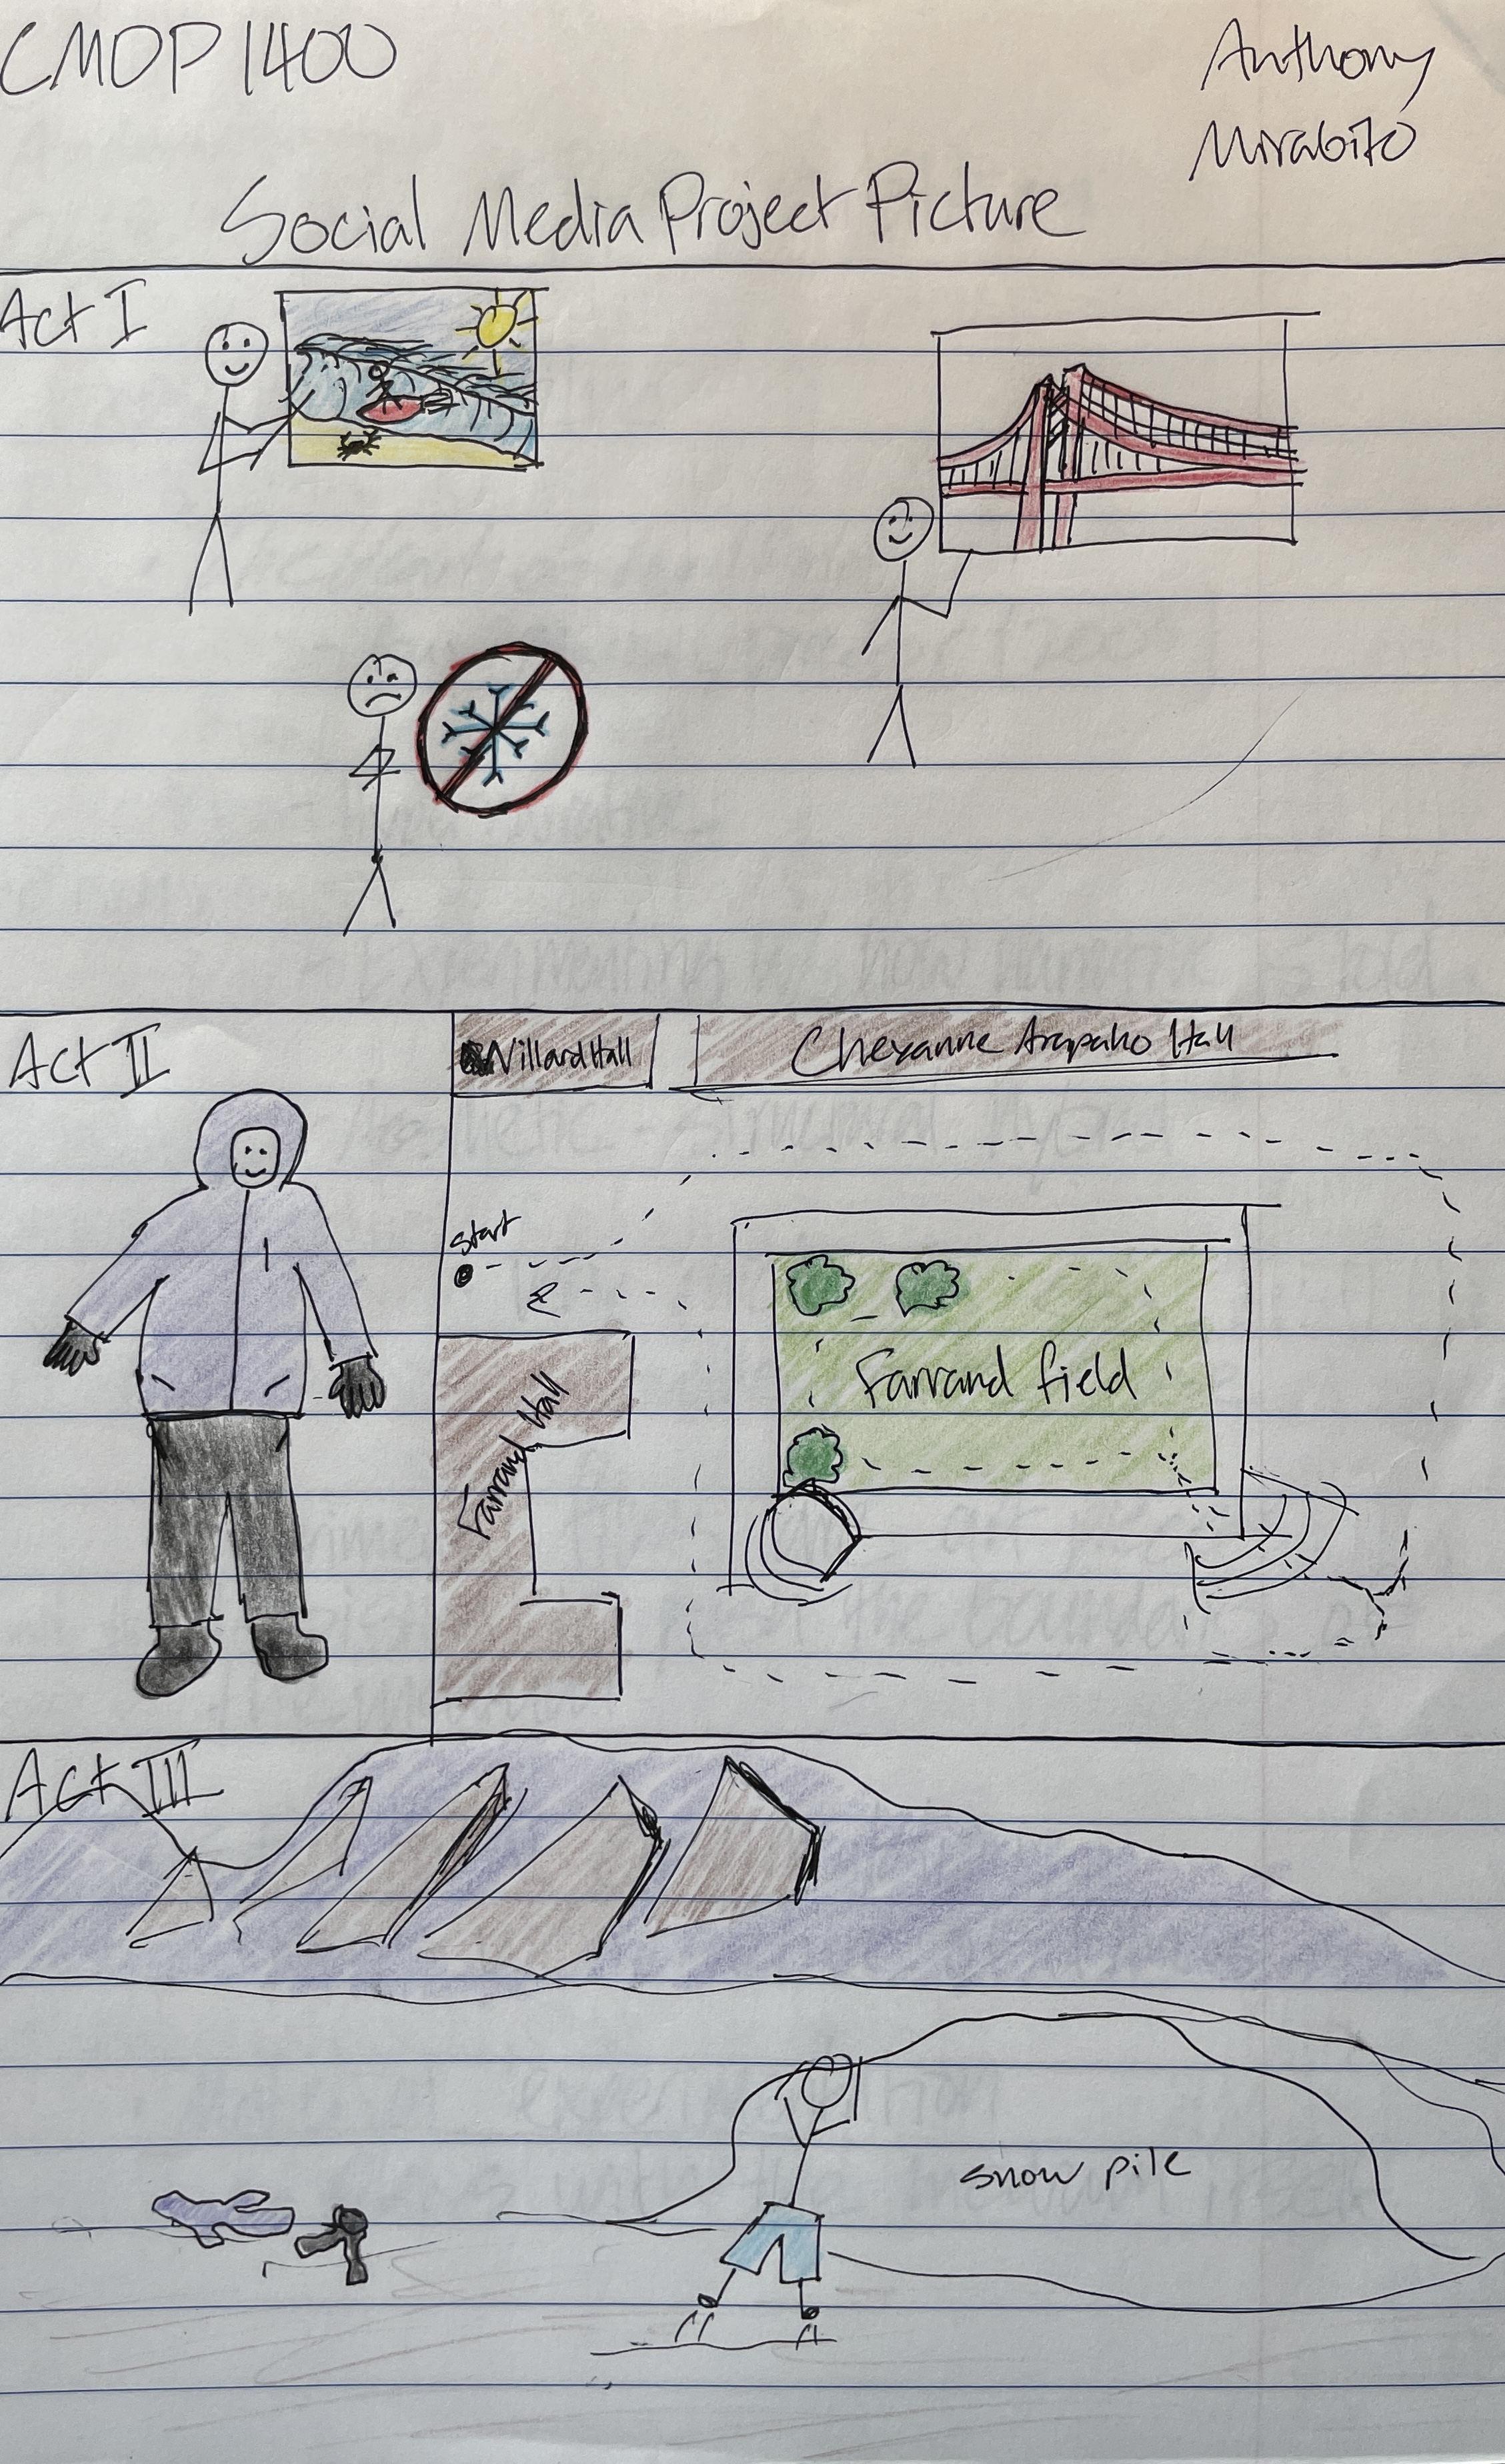 CMDP 1400
Anthony
Mirabito
Social Media Project Picture
Act I
Act II
Willard Hall
Cheyanne Arapaho Hall
Start
Farrand field
Farrand Hall
Act III
snow pile